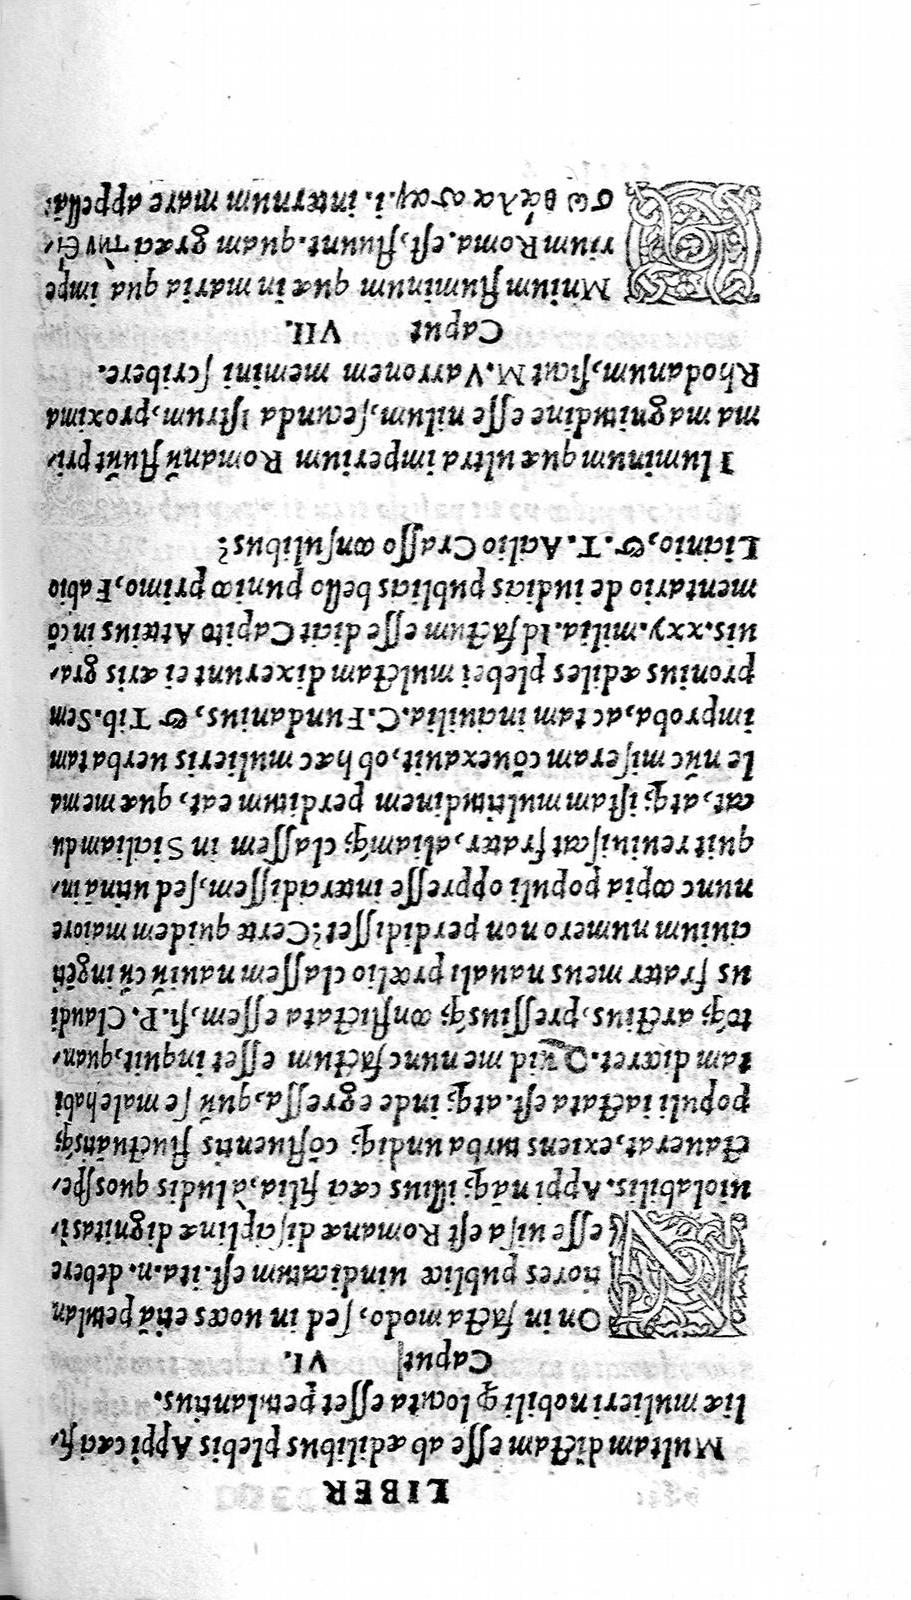 LIBER
Multam dictam esse ab ædilibus plebis Appi cæci fi-
liæ mulieri nobili ꝙ locuta esset petulantius.
Caput VI.
NOn in facta modo, sed in uoces etiā petulan
tiores publice uindicatum est. ita. n. debere
esse uisa est Romanæ disciplinæ dignitas ī-
uiolabilis. Appi nāq; illius cæci filia, a ludis quos spe-
ctauerat, exiens turba undiq; cōfluentis fluctuātisq́;
populi iactata est. atq; inde egressa, quū se male habi
tam diceret. Quid me nunc factum esset inquit, quan-
tóq; arctius, pressiusq́; conflictata essem, si. P. Claudi
us frater meus nauali prælio classem nauiū cū ingēti
ciuium numero non perdidisset? Certe quidem maiore
nunc copia populi oppresse intercidissem, sed utinā in-
quit reuiuiscat frater, aliamq́; classem in Siciliam du
cat, atq; istam multitudinem perditum eat, quæ me ma
le nūc miseram cōuexauit, ob hæc mulieris uerba tam
improba, ac tam inciuilia. C. Fundanius, & Tib. Sem
pronius ædiles plebei mulctam dixerunt ei æris gra-
uis. xxv. milia. Id factum esse dicit Capito Ateius in cō
mentario de iudiciis publicis bello punico primo, Fabio
Licinio, &. T. Acilio Crasso consulibus?
Fluminum quæ ultra imperium Romanū fluūt pri-
ma magnitudine esse nilum, secunda Istrum, proxima
Rhodanum, sicut M. Varronem memini scribere.
Caput VII.
OMnium fluminum quæ in maria qua impe
rium Roma. est, fluunt. quam græci τὴν εἴ-
σω θάλασσαν. i. internum mare appellāt: